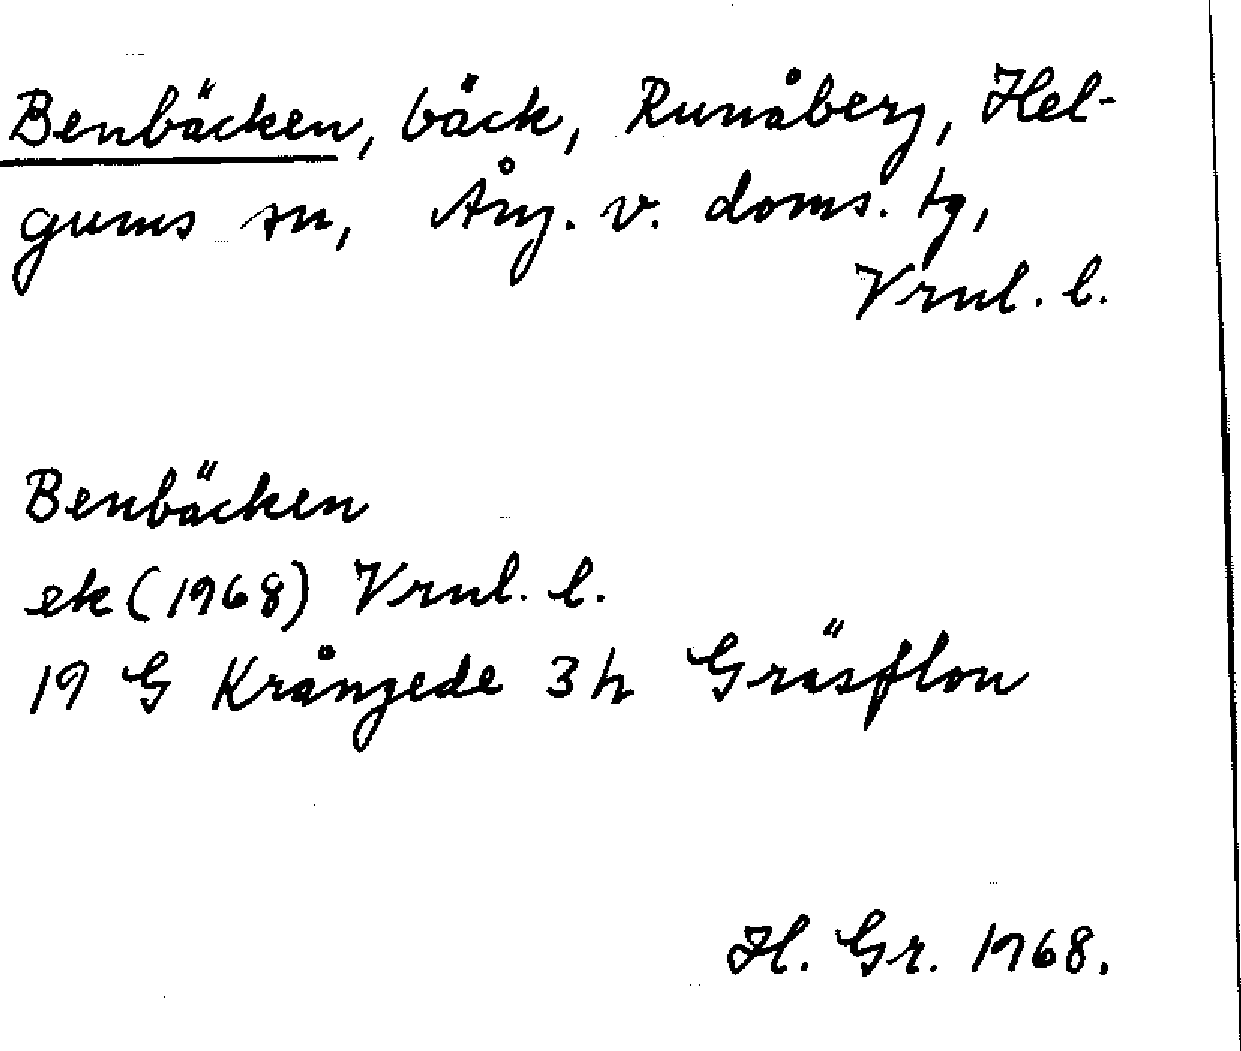 Benbäcken, bäck, Runåberg, Hel-
gums sn, Ång. v. doms. tg,
Vrnl. l.
Benbäcken
ek (1968) Vrnl. l.
19 G Krångede 3 h Gräsflon
H. Gr. 1968.